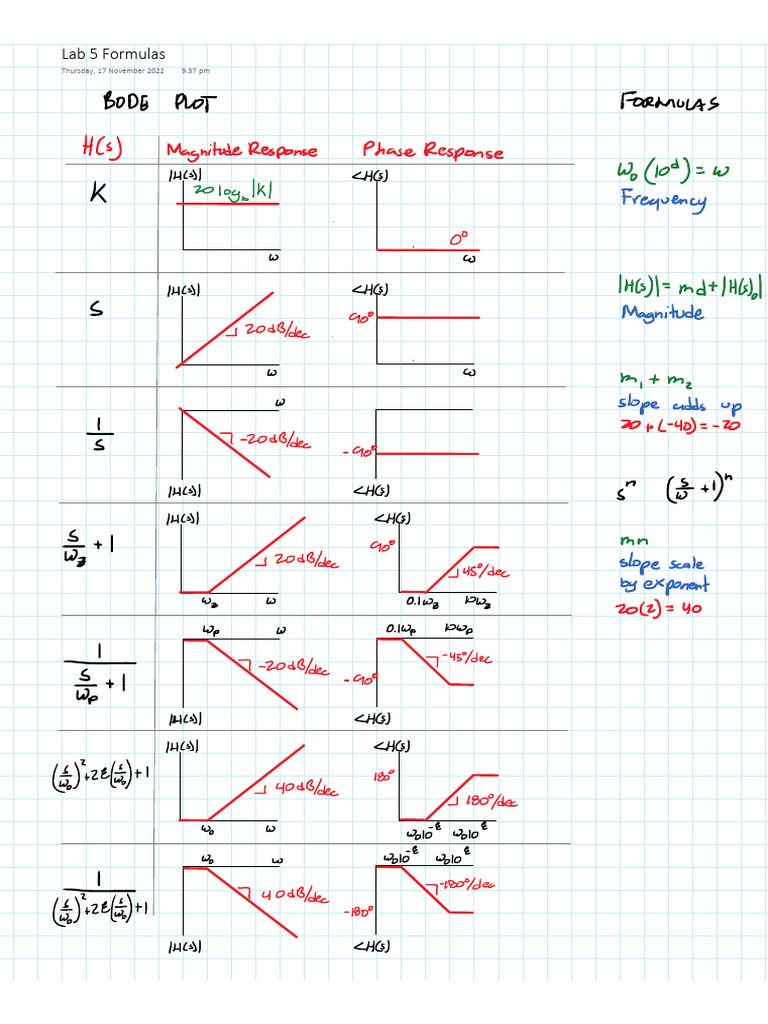 Lab 5 Formulas
Thursday, 17 November 2022 9:37 pm
BODE PLOT
H(s) Magnitude Response Phase Response
K
|H(s)|
20 log₁₀|K|
ω
<H(s)
0°
ω
S
|H(s)|
20 dB/dec
ω
<H(s)
90°
ω
1
S
ω
-20 dB/dec
|H(s)|
-90°
<H(s)
S/ω_z + 1
|H(s)|
20 dB/dec
ω_z ω
<H(s)
90°
45°/dec
0.1ω_z 10ω_z
1
S/ω_p + 1
ω_p ω
-20 dB/dec
|H(s)|
0.1ω_p 10ω_p
-45°/dec
-90°
<H(s)
(s/ω₀)² + 2ξ(s/ω₀) + 1
|H(s)|
40 dB/dec
ω₀ ω
<H(s)
180°
180°/dec
ω₀10^-ξ ω₀10^ξ
1
(s/ω₀)² + 2ξ(s/ω₀) + 1
ω₀ ω
40 dB/dec
|H(s)|
ω₀10^-ξ ω₀10^ξ
-180°/dec
-180°
<H(s)
FORMULAS
ω₀(10^d) = ω
Frequency
|H(s)| = md + |H(s)₀|
Magnitude
m₁ + m₂
slope adds up
20 + (-40) = -20
sⁿ (s/ω + 1)ⁿ
mn
slope scale
by exponent
20(2) = 40